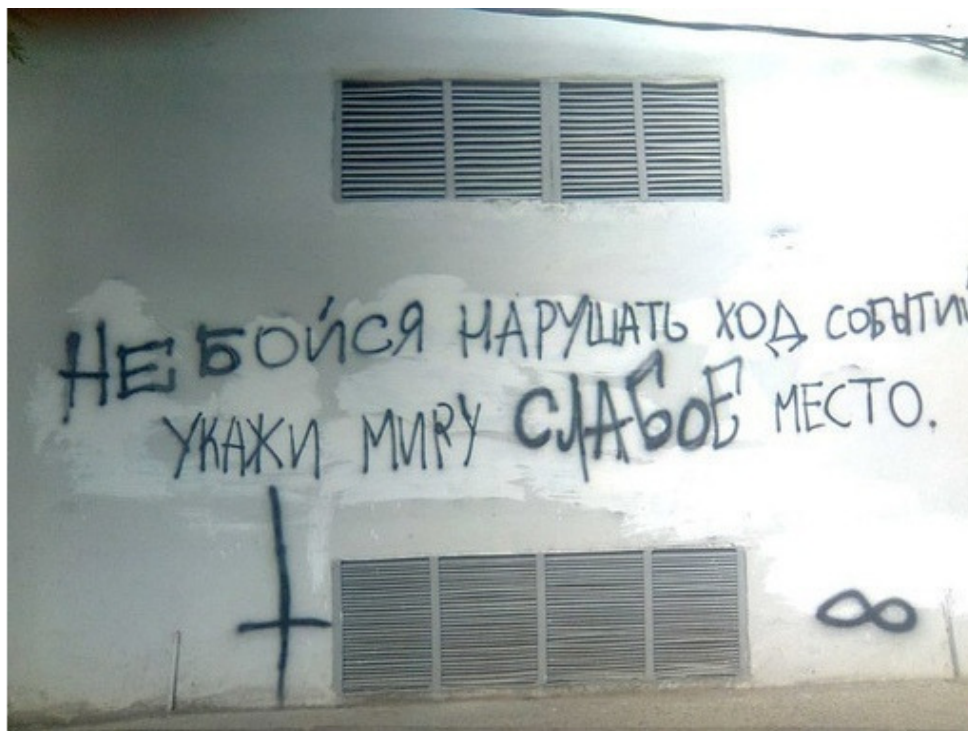 НЕ БОЙСЯ НАРУШАТЬ ХОД СОБЫТИЙ
УКАЖИ МИРУ СЛАБОЕ МЕСТО.